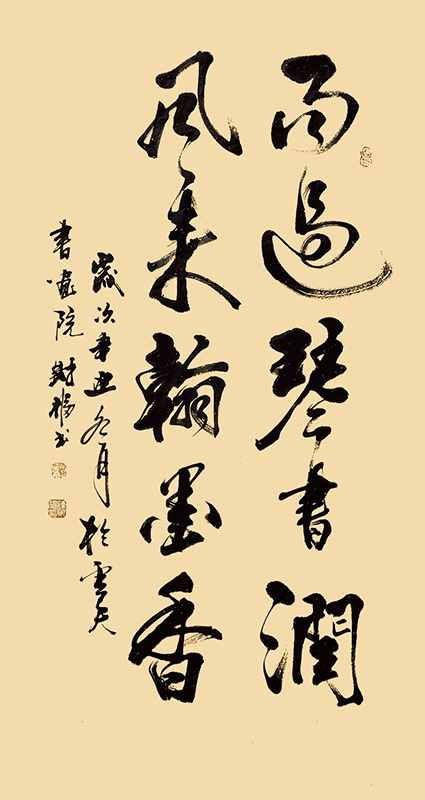 雨過琴書潤
風来翰墨香
歲次辛丑冬月於雲天
書畫院 書